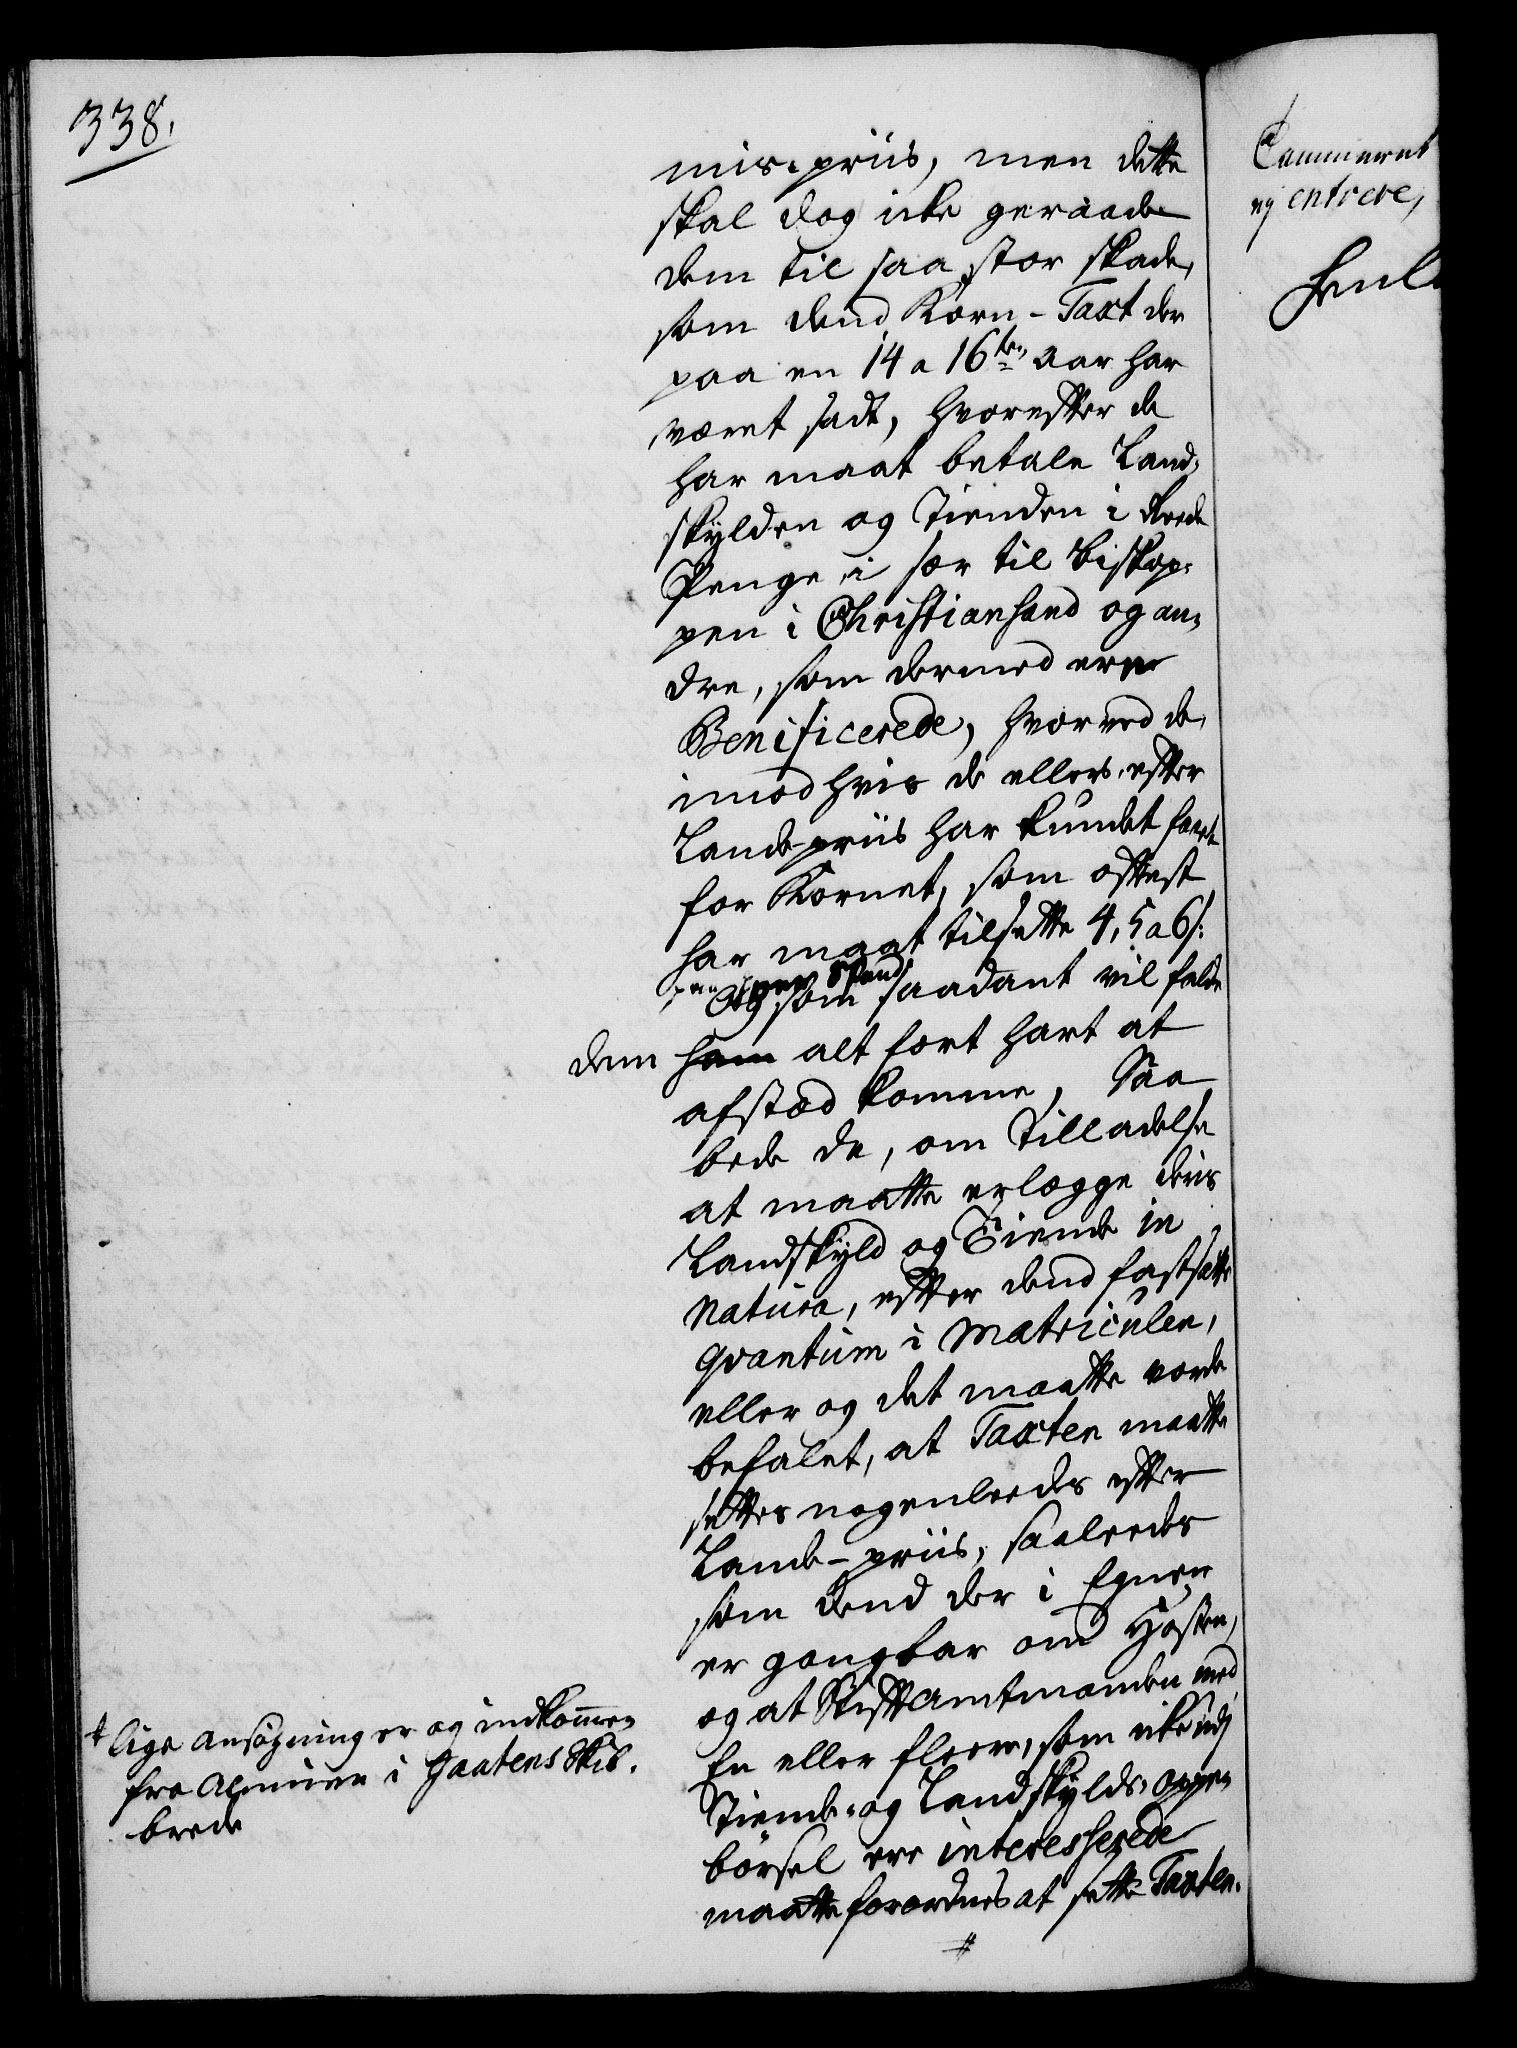 338.
mis-priis, men dette
skal dog icke geraade
dem til saa stor skade,
som dend Korn-Taxt der
paa en 14 a 16ten aar har
været sadt, hvorefter de
har maat betale Land-
skylden og Tienden i Reede
Penge, i sær til Biskop-
pen i Christiansand og an-
dre, som dermed ere
Benificerede, hvorved de,
imod hvis de ellers efter
Lands-priis har kundet faaet
for Kornet, som oftest
har maat tilsette 4, 5 a 6 s:
paa hver Skind
Og som saadant vil falde
dem ham alt fort hart at
afstæd komme, Saa
bede de, om Tilladelse
at maatte erlegge deris
Landskyld og Tiende in
Natura, efter dend fastsatte
Qvantum i Matriculen,
eller og det maatte vorde
befalet, at Taxten maatte
settes nogenleedes efter
Lands-priis, saaleedes
som dend der i Egnen
er gangbar om Høsten,
og at Stiftamtmanden med
En eller fleere, som icke udj
Tiende- og Landskylds-oppe-
børsel ere interesserede
maatte forordnes at sette Taxten.
#
# lige ansøgning er og indkommen
fra Almuen i Jaatens Skib-
brede
Cammeret
ej entrere,